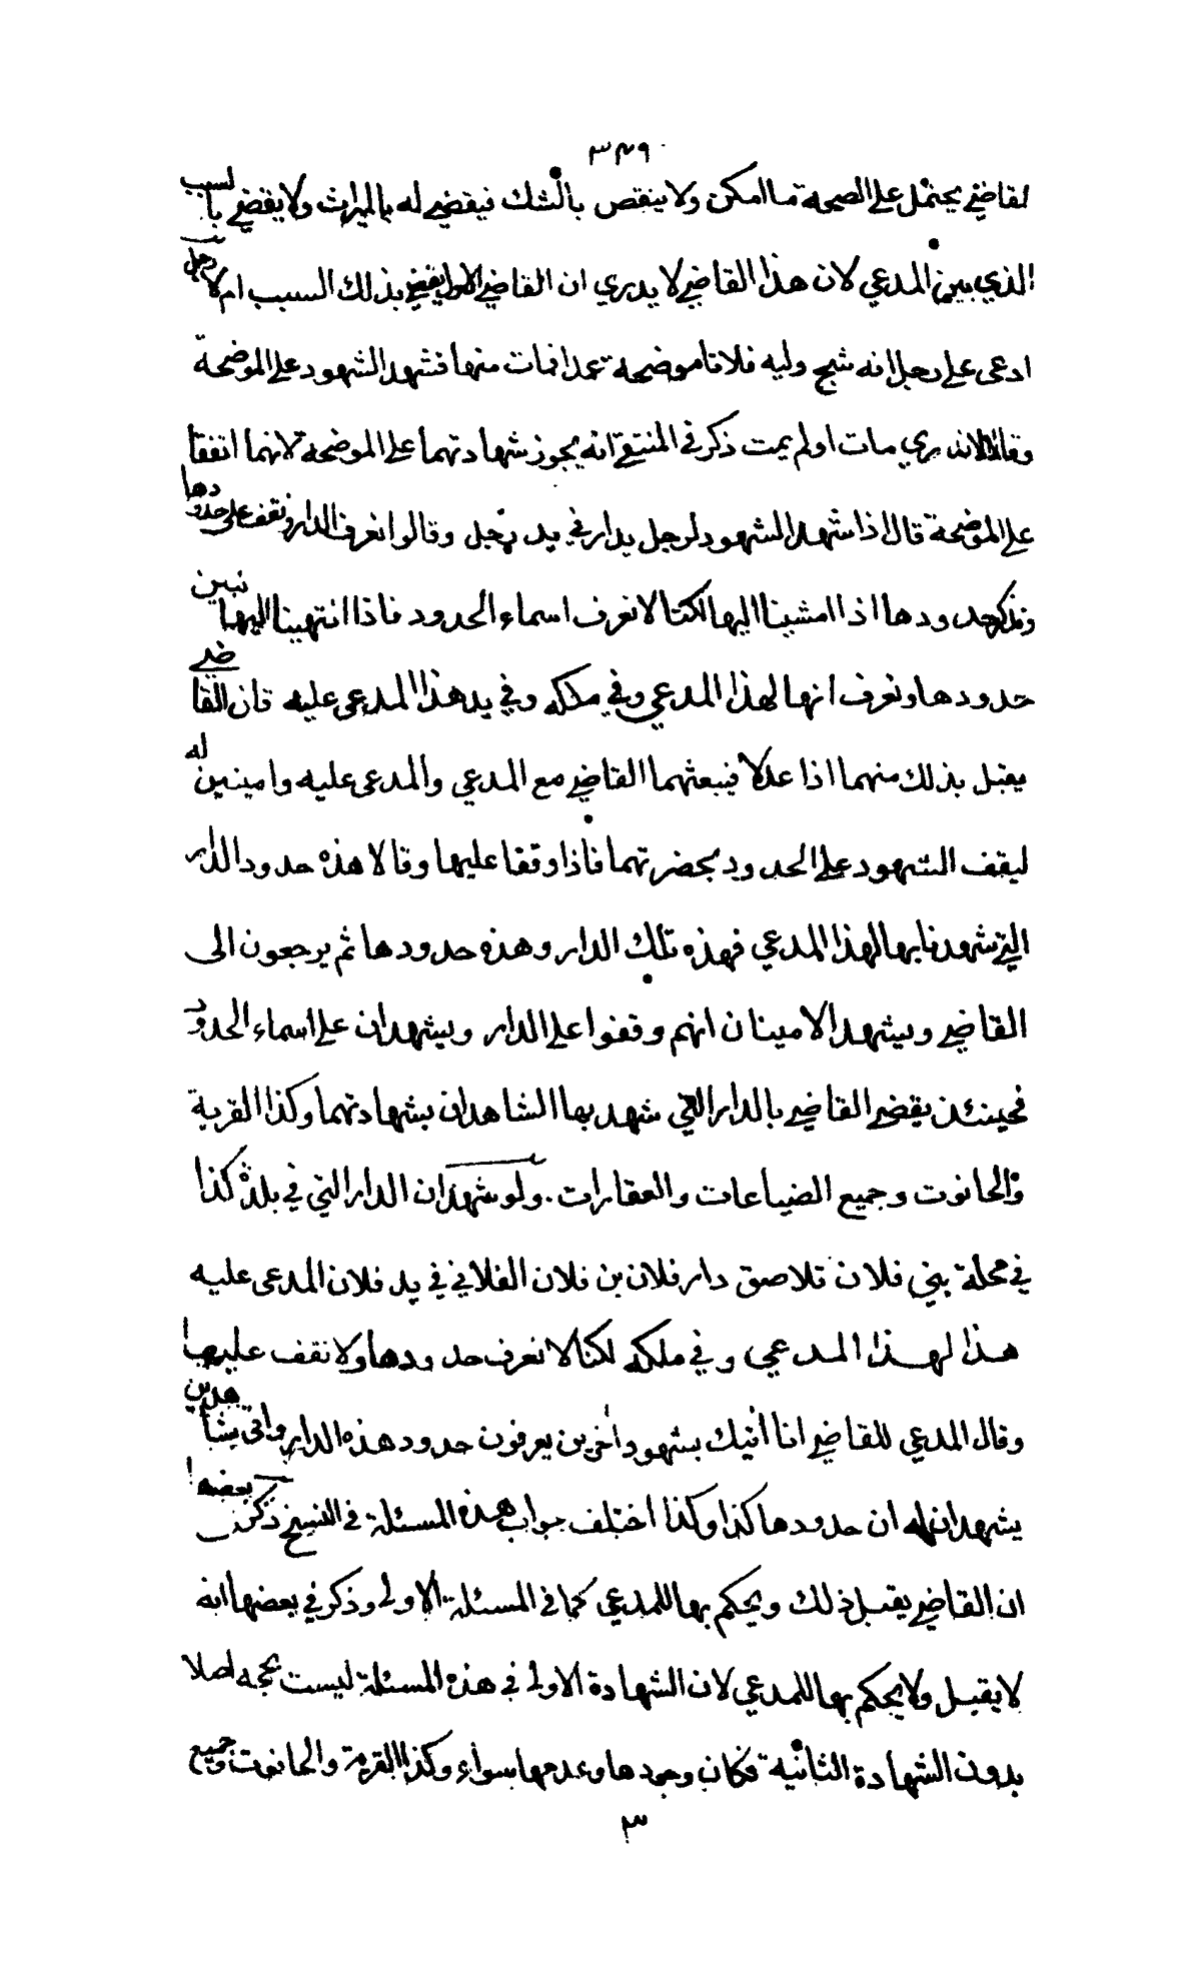 ٣٤٩
لقاضي يحتمل على الصحة ما امكن ولا ينقص بالشك فيقضي له بالميراث ولا يقضي بالسبب
الذي بين المدعي لان هذا القاضي لا يدري ان القاضي الاول يقضي بذلك السبب ام لا رجل
ادعى على رجل انه شج وليه فلانا موضحة عمدا فمات منها فشهد الشهود على الموضحة
وقالا لا ندري مات او لم يمت ذكر في المنتقى انه يجوز شهادتهما على الموضحة لانهما اتفقا
على الموضحة قال اذا شهد الشهود لرجل بدار في يد رجل وقالوا نعرف الدار ونقف على حدودها
ونذكر حدودها اذا مشينا اليها لكنا لا نعرف اسماء الحدود فاذا انتهينا اليها نبين
حدودها ونعرف انها لهذا المدعي وفي ملكه وفي يد هذا المدعى عليه فان القاضي
يقبل بذلك منهما اذا عدلا فيبعثهما القاضي مع المدعي والمدعى عليه وامينين له
ليقف الشهود على الحدود بحضرتهما فاذا وقفا عليها وقالا هذه حدود الدار
التي شهدنا بها لهذا المدعي فهذه تلك الدار وهذه حدودها ثم يرجعون الى
القاضي ويشهد الامينان انهم وقفوا على الدار ويشهدان على اسماء الحدود
فحينئذ يقضي القاضي بالدار التي شهد بها الشاهدان بشهادتهما وكذا القرية
والحانوت وجميع الضياعات والعقارات. ولو شهد ان الدار التي في بلدة كذا
في محلة بني فلان تلاصق دار فلان بن فلان الفلاني في يد فلان المدعى عليه
هذا لهذا المدعي وفي ملكه لكنا لا نعرف حدودها ولا نقف عليها
وقال المدعي للقاضي انا اتيك بشهود اخرين يعرفون حدود هذه الدار واتى بشاهدين
يشهدان له ان حدودها كذا وكذا اختلف جواب هذه المسئلة في النسخ ذكر في بعضها
ان القاضي يقبل ذلك ويحكم بها للمدعي كما في المسئلة الاولى وذكر في بعضها انه
لا يقبل ولا يحكم بها للمدعي لان الشهادة الاولى في هذه المسئلة ليست بحجة اصلا
بدون الشهادة الثانية فكان وجودها وعدمها سواء وكذا القرية والحانوت وجميع
٣